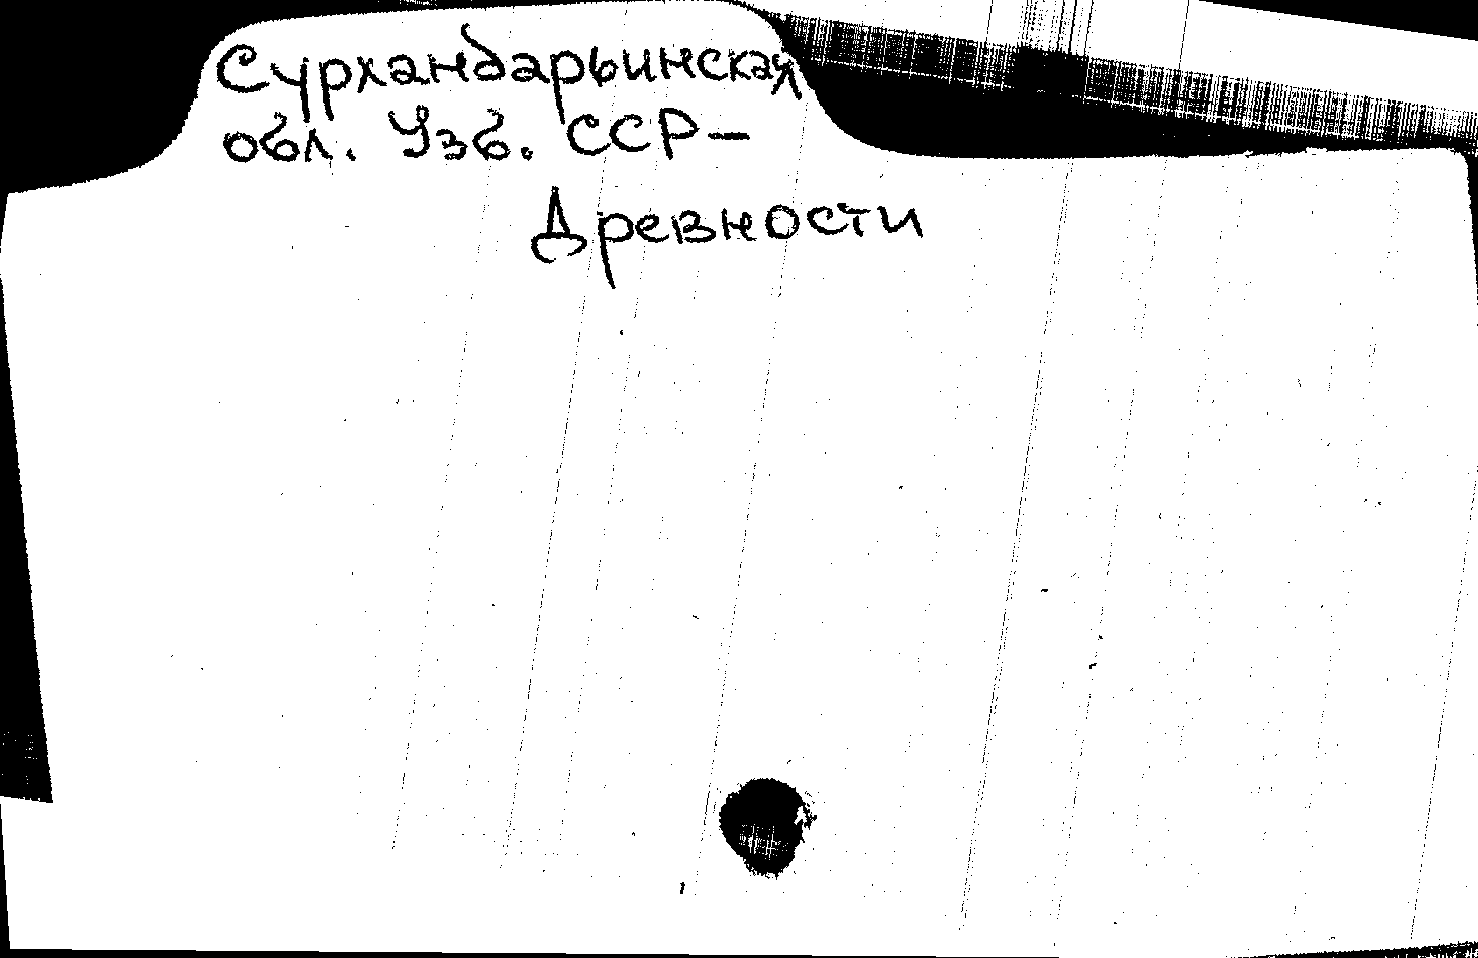 Сурхандарьинская
обл. Узб. ССР —
Древности